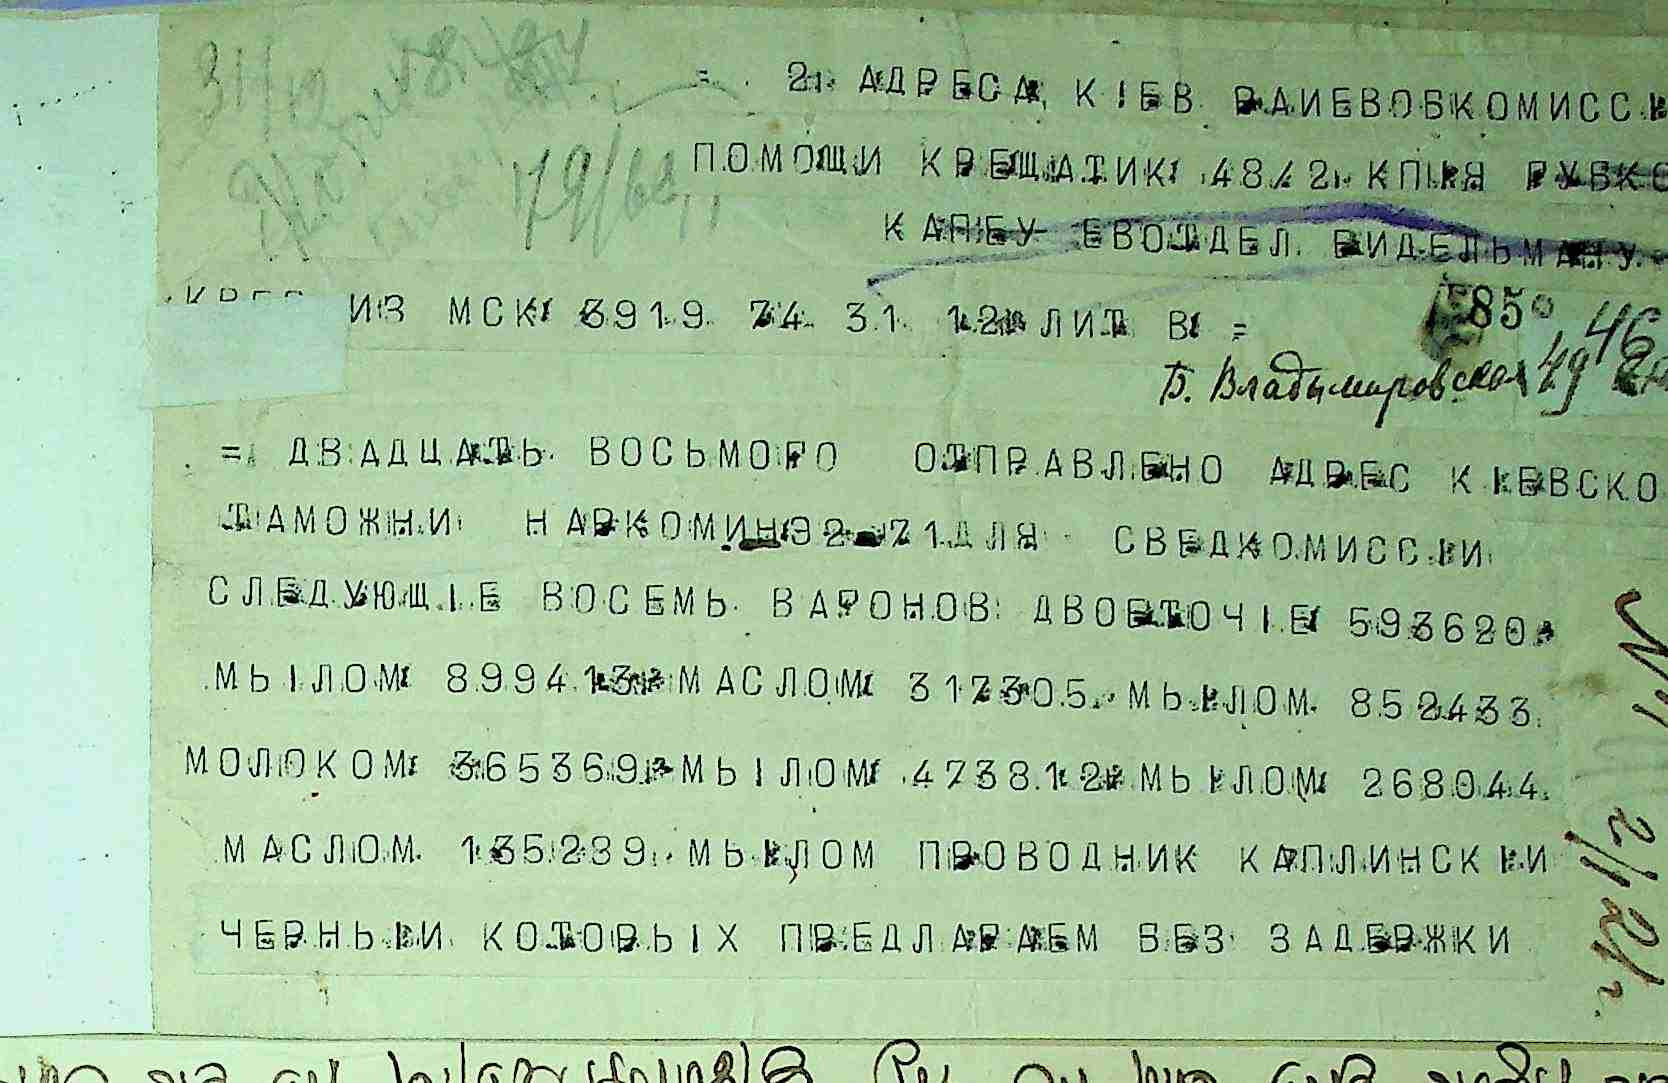 = 2 АДРЕСА КІЕВ РАИЕВОБКОМИСС
ПОМОЩИ КРЕЩАТИК 48/2 КПІЯ РУБКО
КАПБУ ЕВОТДЕЛ ВИДЕЛЬМАНУ
ИЗ МСК 3919 74 31 12 ЛИТ В =
850
Б. Владимировская 49 46
= ДВАДЦАТЬ ВОСЬМОГО ОТПРАВЛЕНО АДРЕС КІЕВСКО
ТАМОЖНИ НАРКОМИН 92-71 ДЛЯ СВЕДКОМИССІИ
СЛЕДУЮЩІЕ ВОСЕМЬ ВАГОНОВ ДВОЕТОЧІЕ 593620
МЫЛОМ 899413 МАСЛОМ 317305 МЫЛОМ 852433
МОЛОКОМ 365369 МЫЛОМ 473812 МЫЛОМ 268044
МАСЛОМ 135289 МЫЛОМ ПРОВОДНИК КАПЛИНСКІИ
ЧЕРНЫИ КОТОРЫХ ПРЕДЛАГАЕМ БЕЗ ЗАДЕРЖКИ
31/12
79/68
№1
2/I 21 г.